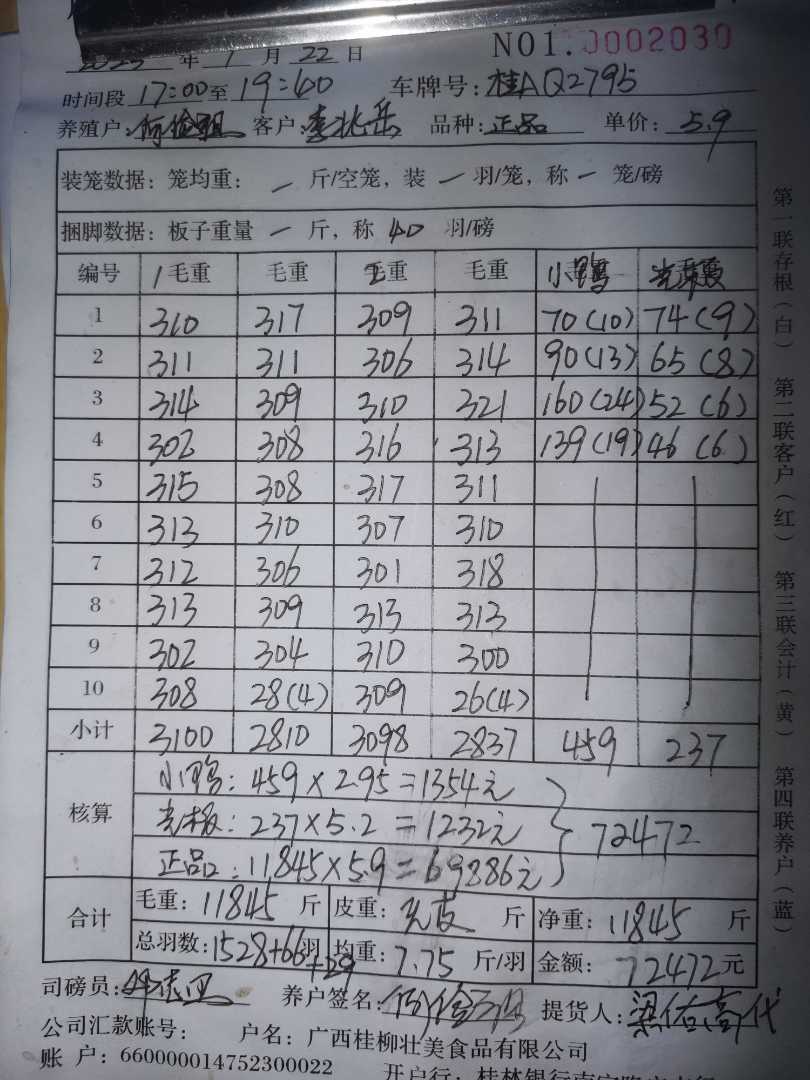 年 1 月 22 日 NO1.0002030
时间段 17:00 至 19:40 车牌号: 桂AQ2795
养殖户: 客户: 李兆岳 品种: 正品 单价: 5.9
装笼数据: 笼均重: 一 斤/空笼, 装 一 羽/笼, 称 一 笼/磅
捆脚数据: 板子重量 一 斤, 称 40 羽/磅
编号 1毛重 毛重 2毛重 毛重 小鸭
1 310 317 309 311 70(10) 74(9)
2 311 311 306 314 90(13) 65(8)
3 314 309 310 321 160(24) 52(6)
4 302 308 316 313 139(19) 46(6)
5 315 308 317 311
6 313 310 307 310
7 312 306 301 318
8 313 309 313 313
9 302 304 310 300
10 308 28(4) 309 26(4)
小计 3100 2810 3098 2837 459 237
核算
小鸭: 459×2.95=1354元
光板: 237×5.2=1232元
正品: 11845×5.9=69886元
72472
合计 毛重: 11845 斤 皮重: 无皮 斤 净重: 11845 斤
总羽数: 1528+66羽+29 均重: 7.75 斤/羽 金额: 72472元
司磅员: 养户签名: 提货人:
公司汇款账号: 户名: 广西桂柳壮美食品有限公司
账 户: 660000014752300022 开户行: 桂林银行南宁
第一联存根(白) 第二联客户(红) 第三联会计(黄) 第四联养户(蓝)